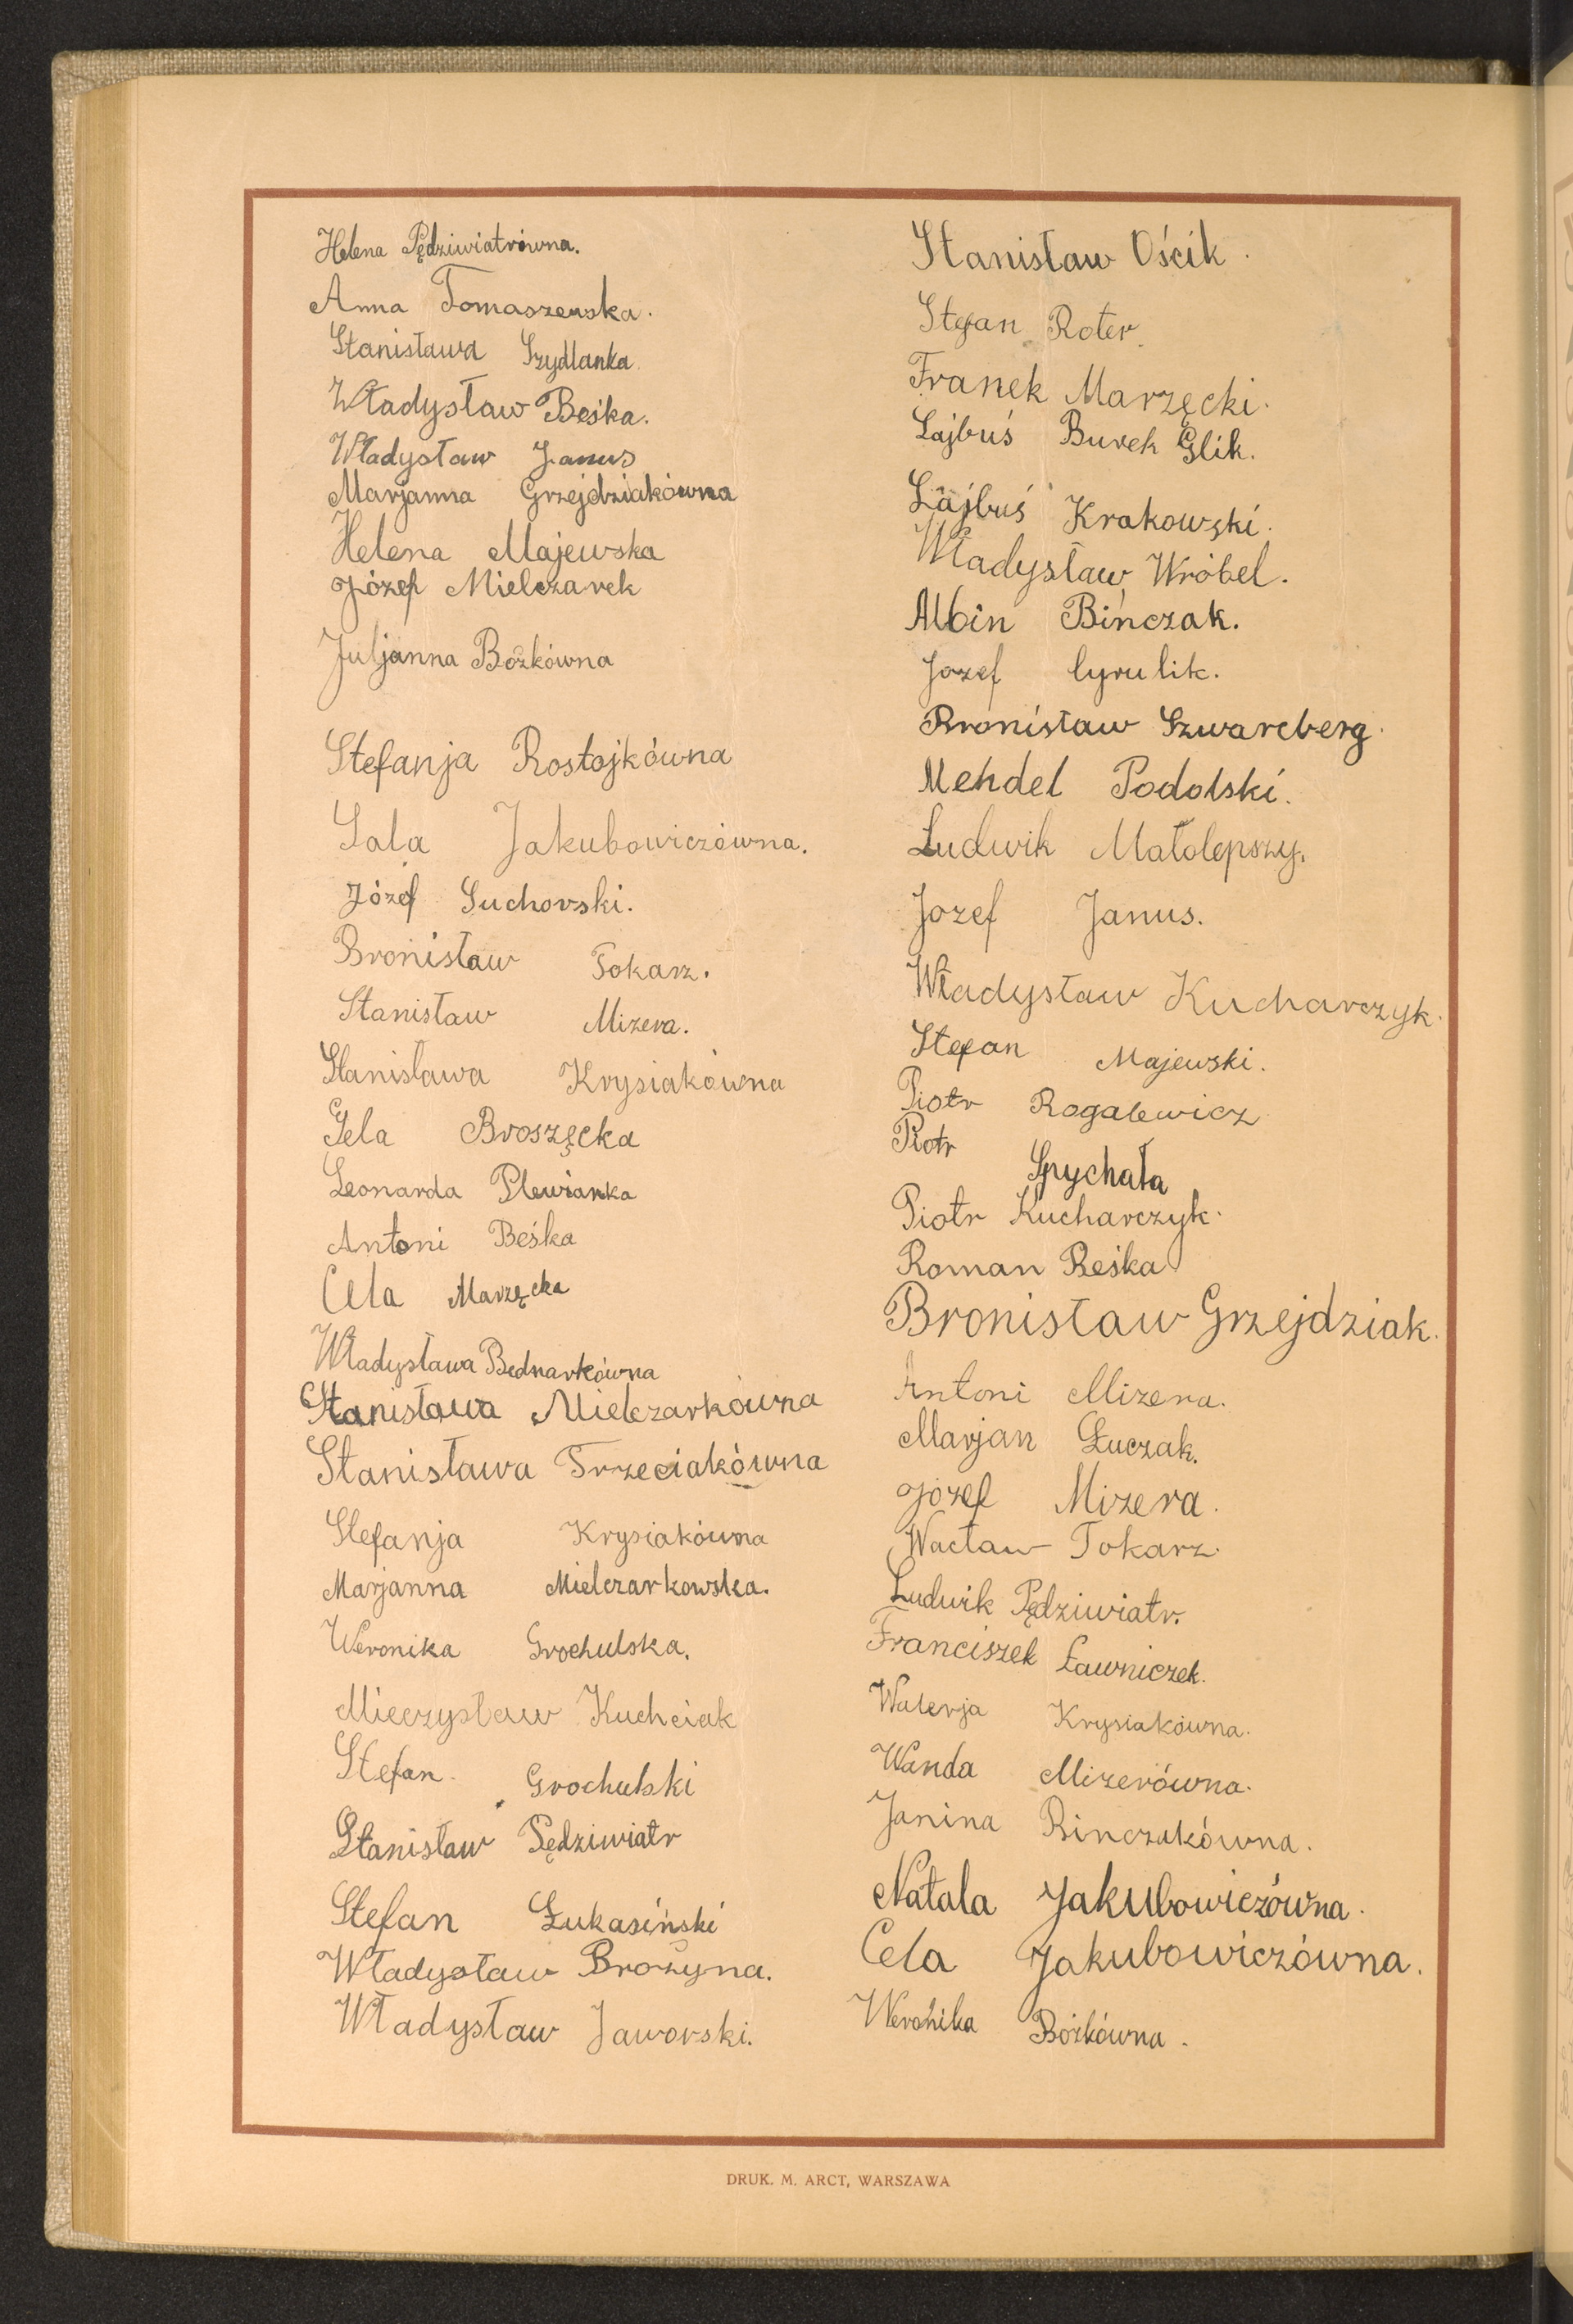 Helena Pędziwiatrówna.
Anna Tomaszewska.
Stanisława Szydlanka
Władysław Beśka.
Władysław Janus
Marjanna Grzejdziakówna
Helena Majewska
Józef Mielczarek
Juljanna Bożkówna
Stefanja Rostojkówna
Sala Jakubowiczówna.
Józef Suchorski.
Bronisław Tokarz.
Stanisław Mizera.
Stanisława Krysiakówna
Gela Broszęcka
Leonarda Plewianka
Antoni Beśka
Cela Marzęcka
Władysława Bednarkówna
Stanisława Mielczarkówna
Stanisława Trzeciakówna
Stefanja Krysiakówna
Marjanna Mielczarkowska.
Weronika Grochulska.
Mieczysław Kuchciak
Stefan Grochulski
Stanisław Pędziwiatr
Stefan Łukasiński
Władysław Brożyna.
Władysław Jaworski.
Stanisław Ościk.
Stefan Roter.
Franek Marzęcki.
Lajbuś Burek Glik.
Lajbuś Krakowski.
Władysław Wróbel.
Albin Bińczak.
Jozef Cyrulik.
Bronisław Szwarcberg.
Mendel Podolski.
Ludwik Małolepszy.
Jozef Janus.
Władysław Kucharczyk.
Stefan Majewski.
Piotr Rogalewicz
Piotr Spychała
Piotr Kucharczyk.
Roman Beśka
Bronisław Grzejdziak.
Antoni Mizera.
Marjan Łuczak.
Józef Mizera.
Wacław Tokarz.
Ludwik Pędziwiatr.
Franciszek Ławniczek.
Walerja Krysiakówna.
Wanda Mizerówna.
Janina Binczakówna.
Natala Jakubowiczówna.
Cela Jakubowiczówna.
Weronika Bożkówna.
DRUK. M. ARCT, WARSZAWA